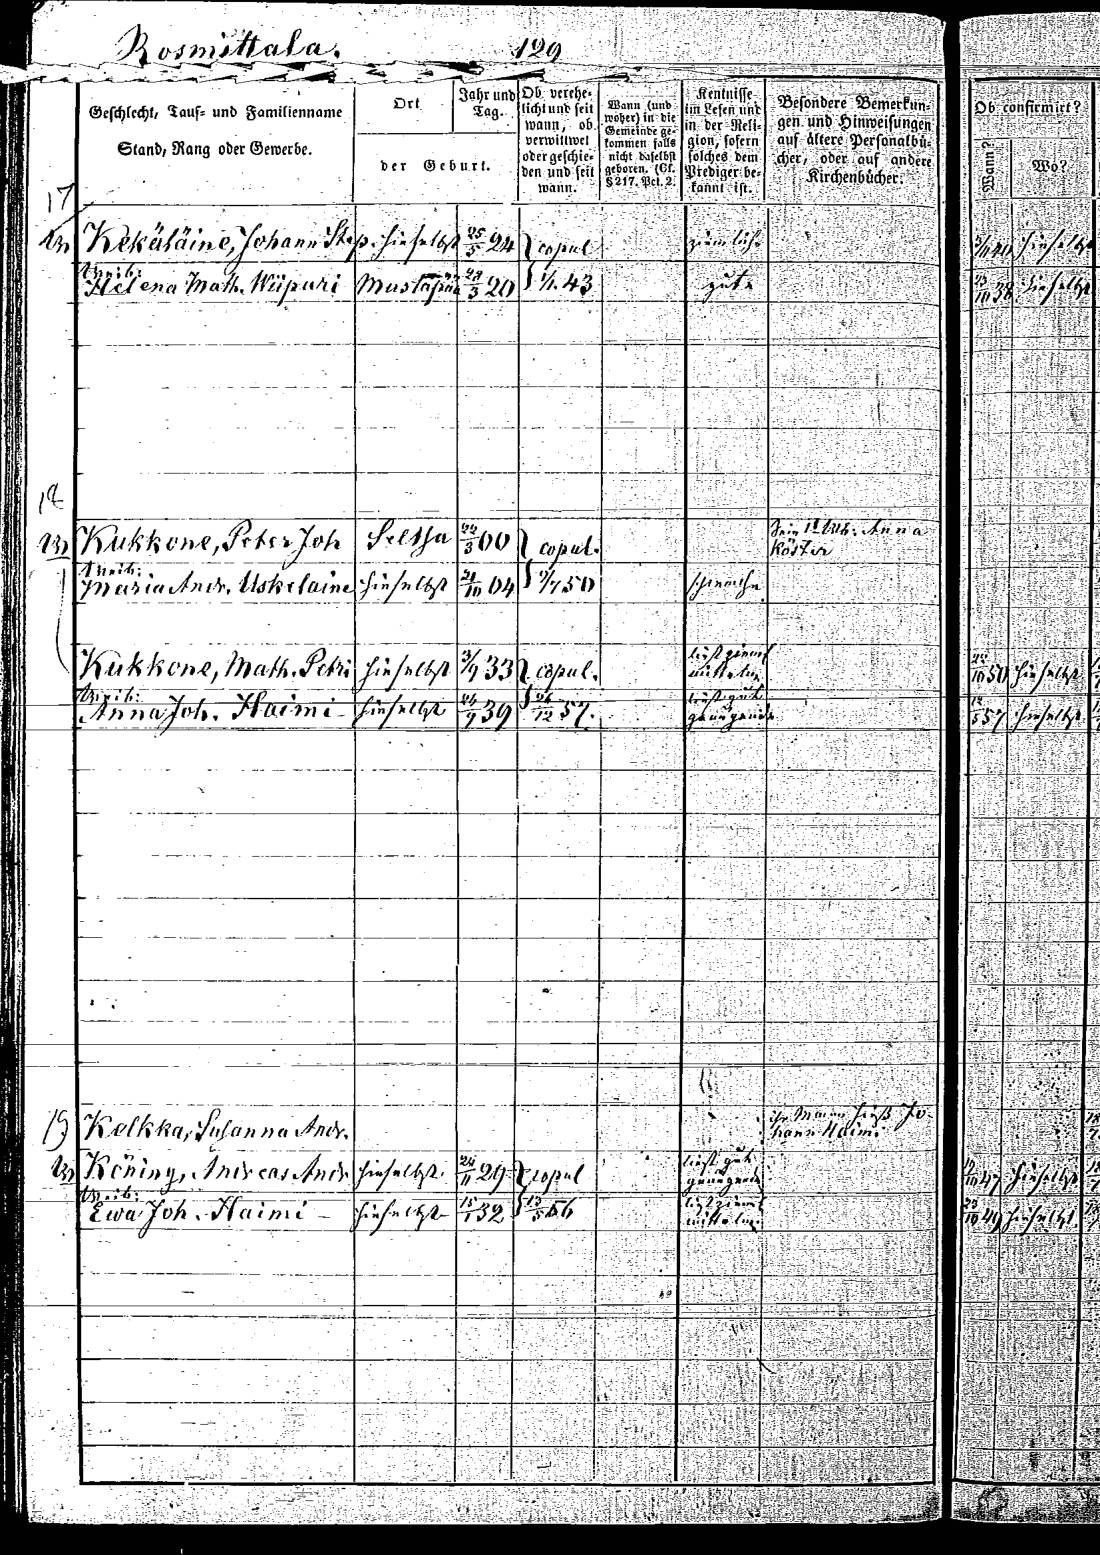 Rosmittala. 129
Geschlecht, Tauf- und Familienname
Stand, Rang oder Gewerbe.
Ort
Jahr und
Tag.
der Geburt.
Ob verehe-
licht und seit
wann, ob
verwittwet
oder geschie-
den und seit
wann.
Wann (und
woher) in die
Gemeinde ge-
kommen falls
nicht daselbst
geboren. (Cf.
§ 217. Pct. 2.
Kentnisse
im Lesen und
in der Reli-
gion, sofern
solches dem
Prediger be-
kannt ist.
Besondere Bemerkun-
gen und Hinweisungen
auf ältere Personalbü-
cher, oder auf andere
Kirchenbücher.
Ob confirmirt?
Wann?
Wo?
17
Kekäläine, Johann Step. hieselbst 25/5 24 copul ziemlich hieselbst
Weib:
Helena Math. Wiipuri 1/1. 43 gut 38 hieselbst
18
Kukkone, Peter Joh Seltsa 00 copul. Sein 1t Wb. Anna
Köster
Weib:
Maria Andr. Uskelaine hieselbst 04 2/7. 50 schwache
Kukkone, Math. Petri hieselbst 3/9 33 copul. liest ziemt
mittelm 50 hieselbst
Weib:
Anna Joh. Haimi hieselbst 39 57. liest gut
genügend 57 hieselbst
19
Kelkka, Susanna Andr. ihr Mann hieß Jo-
hann Haimi
Köning, Andreas Andr hieselbst. 29 copul liest gut
genügend 47 hieselbst
Weib:
Ewa Joh. Haimi hieselbst 32 liest ziemt
mittelm. 49 hieselbst